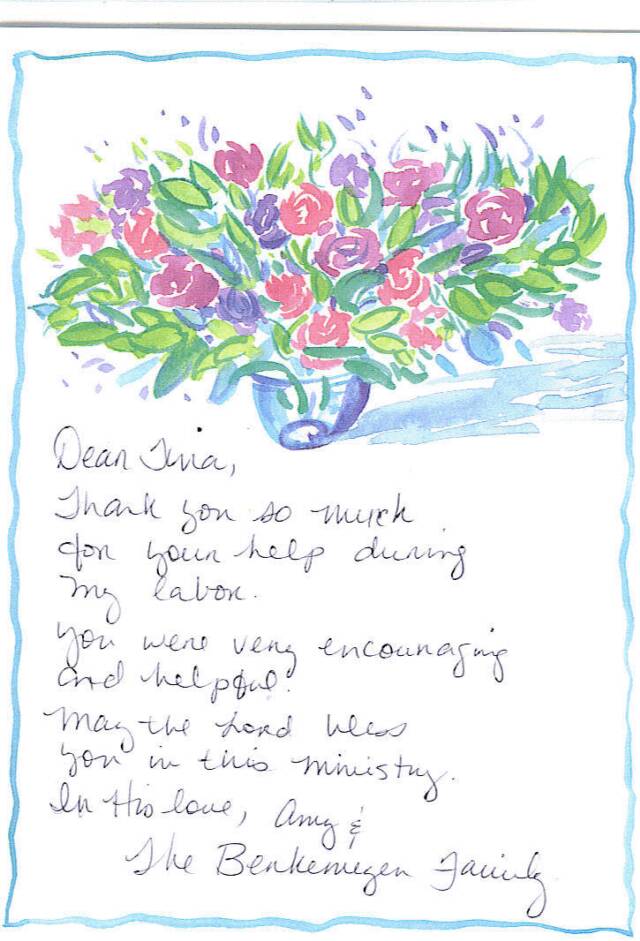 Dear Tina,
Thank you so much
for your help during
my labor.
You were very encouraging
and helpful.
May the Lord bless
you in this ministry.
In His love, Amy &
The Benkemeyer Family